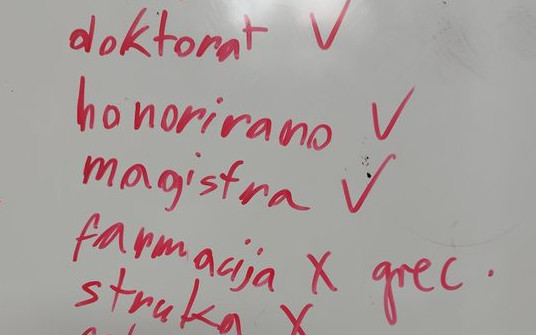 doktorat ✓
honorirano ✓
magistra ✓
farmacija X grec.
struka X